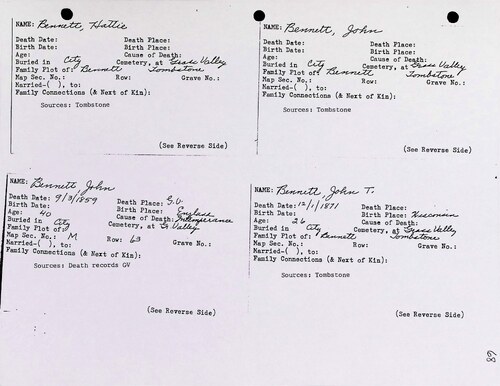 NAME: Bennett, Hattie
Death Date: Death Place:
Birth Date: Birth Place:
Age: Cause of Death:
Buried in City Cemetery, at Grass Valley
Family Plot of: Bennett Tombstone
Map Sec. No.: Row: Grave No.:
Married-( ), to:
Family Connections (& Next of Kin):
Sources: Tombstone
(See Reverse Side)
NAME: Bennett, John
Death Date: Death Place:
Birth Date: Birth Place:
Age: Cause of Death:
Buried in City Cemetery, at Grass Valley
Family Plot of: Bennett Tombstone
Map Sec. No.: Row: Grave No.:
Married-( ), to:
Family Connections (& Next of Kin):
Sources: Tombstone
(See Reverse Side)
NAME: Bennett, John
Death Date: 9/3/1859 Death Place: G.V.
Birth Date: Birth Place: England
Age: 40 Cause of Death: Intemperance
Buried in City Cemetery, at G. Valley
Family Plot of:
Map Sec. No.: M Row: 63 Grave No.:
Married-( ), to:
Family Connections (& Next of Kin):
Sources: Death records GV
(See Reverse Side)
NAME: Bennett, John T.
Death Date: 12/1/1871 Death Place:
Birth Date: Birth Place: Wisconsin
Age: 26 Cause of Death:
Buried in City Cemetery, at Grass Valley
Family Plot of: Bennett Tombstone
Map Sec. No.: Row: Grave No.:
Married-( ), to:
Family Connections (& Next of Kin):
Sources: Tombstone
(See Reverse Side)